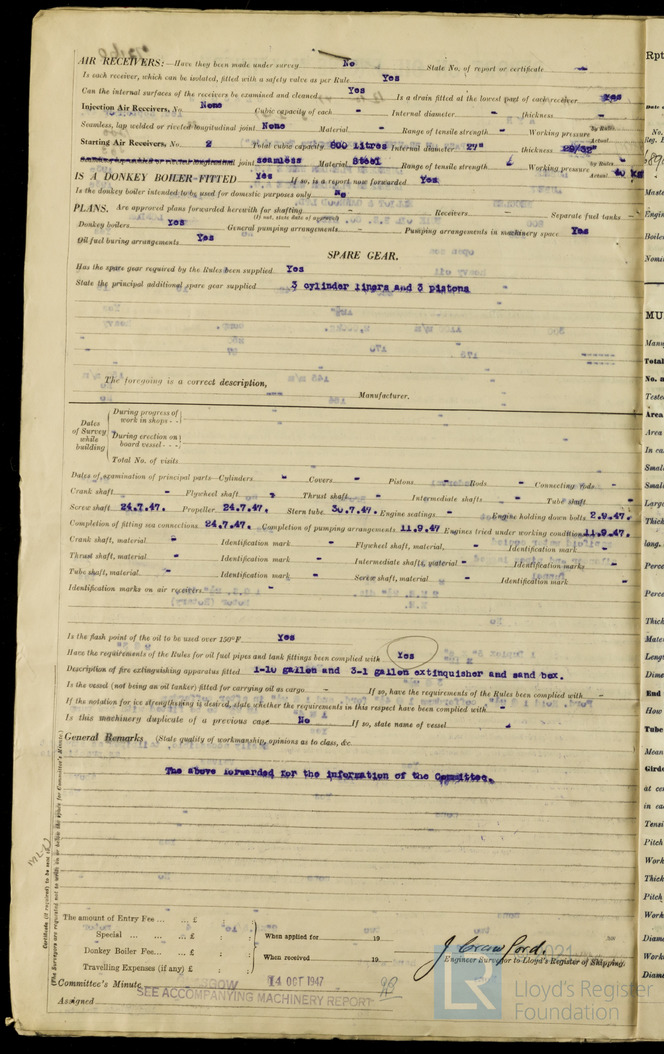 AIR RECEIVERS:—Have they been made under survey No State No. of report or certificate -
Is each receiver, which can be isolated, fitted with a safety valve as per Rule Yes
Can the internal surfaces of the receivers be examined and cleaned Yes Is a drain fitted at the lowest part of each receiver Yes
Injection Air Receivers, No. None Cubic capacity of each - Internal diameter - thickness -
Seamless, lap welded or riveted longitudinal joint None Material - Range of tensile strength - Working pressure by Rules - Actual -
Starting Air Receivers, No. 2 Total cubic capacity 800 litres Internal diameter 27" thickness 29/32"
Seamless, lap welded or riveted longitudinal joint seamless Material Steel Range of tensile strength Working pressure by Rules - Actual 40 KG
IS A DONKEY BOILER FITTED Yes If so, is a report now forwarded Yes
Is the donkey boiler intended to be used for domestic purposes only No
PLANS. Are approved plans forwarded herewith for shafting - Receivers - Separate fuel tanks -
(If not, state date of approval)
Donkey boilers Yes General pumping arrangements - Pumping arrangements in machinery space Yes
Oil fuel buring arrangements Yes
SPARE GEAR.
Has the spare gear required by the Rules been supplied Yes
State the principal additional spare gear supplied 3 cylinder liners and 3 pistons
The foregoing is a correct description,
Manufacturer.
Dates of Survey while building
During progress of work in shops - -
During erection on board vessel - - -
Total No. of visits
Dates of examination of principal parts—Cylinders - Covers - Pistons - Rods - Connecting rods -
Crank shaft - Flywheel shaft - Thrust shaft - Intermediate shafts - Tube shaft -
Screw shaft 24.7.47. Propeller 24.7.47. Stern tube 30.7.47. Engine seatings - Engine holding down bolts 2.9.47.
Completion of fitting sea connections 24.7.47. Completion of pumping arrangements 11.9.47 Engines tried under working conditions 11.9.47.
Crank shaft, material - Identification mark - Flywheel shaft, material - Identification mark -
Thrust shaft, material - Identification mark - Intermediate shafts, material - Identification marks -
Tube shaft, material - Identification mark - Screw shaft, material - Identification mark -
Identification marks on air receivers -
Is the flash point of the oil to be used over 150°F. Yes
Have the requirements of the Rules for oil fuel pipes and tank fittings been complied with Yes
Description of fire extinguishing apparatus fitted 1-10 gallon and 3-1 gallon extinguisher and sand box.
Is the vessel (not being an oil tanker) fitted for carrying oil as cargo - If so, have the requirements of the Rules been complied with -
If the notation for ice strengthening is desired, state whether the requirements in this respect have been complied with -
Is this machinery duplicate of a previous case No If so, state name of vessel -
General Remarks (State quality of workmanship, opinions as to class, &c.
The above forwarded for the information of the Committee.
Certificate (if required) to be sent to
(The Surveyors are requested not to write on or below the space for Committee's Minute.)
The amount of Entry Fee ... £ : :
Special ... ... £ : : When applied for 19
Donkey Boiler Fee... £ : : When received 19
Travelling Expenses (if any) £ : :
J Crawford.
Engineer Surveyor to Lloyd's Register of Shipping.
Committee's Minute GLASGOW 14 OCT 1947
SEE ACCOMPANYING MACHINERY REPORT
Assigned
Lloyd's Register
Foundation
Rpt